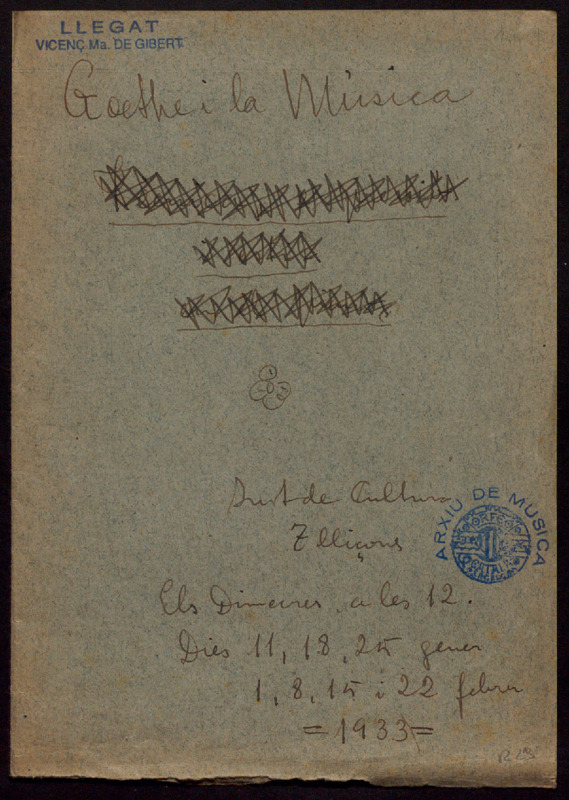 LLEGAT
VICENÇ Ma. DE GIBERT
Goethe i la Música
Inst de Cultura
7 lliçons
ARXIU DE MUSICA
ORFEÓ
CATALÀ
Els Dimecres, a les 12.
Dies 11, 18, 25 gener
1, 8, 15 i 22 febrer
=1933=